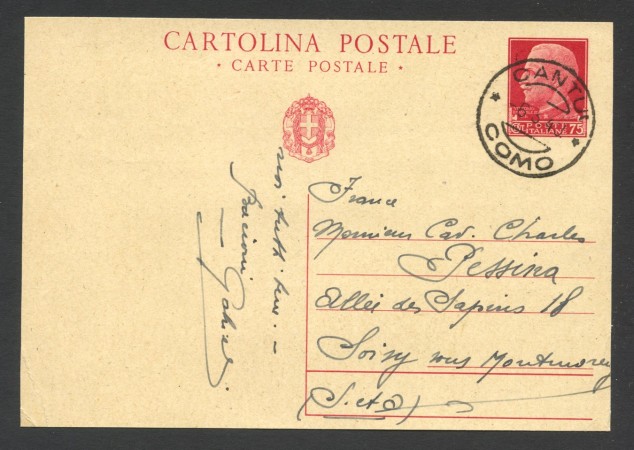 CARTOLINA POSTALE
• CARTE POSTALE •
POSTE ITALIANE 75
CANTU'
COMO
France
Monsieur Cav. Charles
Pessina
Allée des Sapins 18
Soisy sous Montmorency
(S. et O)
noi tutti
Bacioni